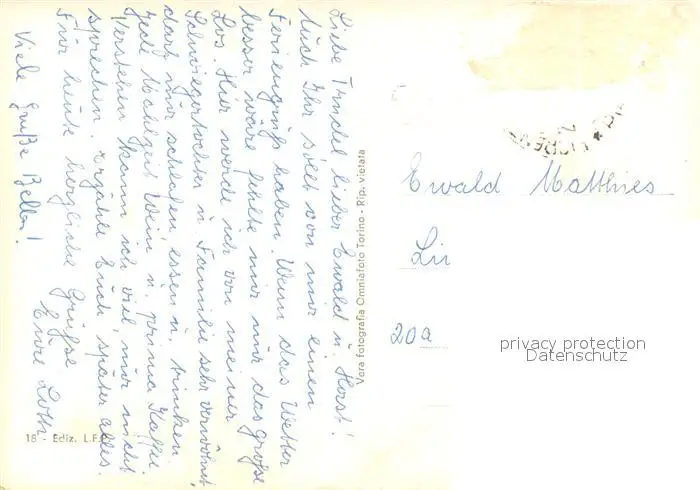 Liebe Trudel lieber Ewald u. Horst!
Auch Ihr sollt von mir einen
Feriengruß haben. Wenn das Wetter
besser wäre fehlte mir nur das große
Los. Hier werde ich von meiner
Schwiegertochter u. Familie sehr verwöhnt,
darf nur schlafen essen u. trinken
Jede Mahlzeit Wein u. prima Kaffe.
Verstehen kann ich viel, nur nicht
sprechen. Erzähle Euch später alles.
Für heute herzliche Grüße
Eure Loth
Viele Grüße Bello!
18 - Ediz. L.F.
Vera fotografia Omniafoto Torino - Rip. vietata
Ewald Matthies
Lin
20a
privacy protection
Datenschutz